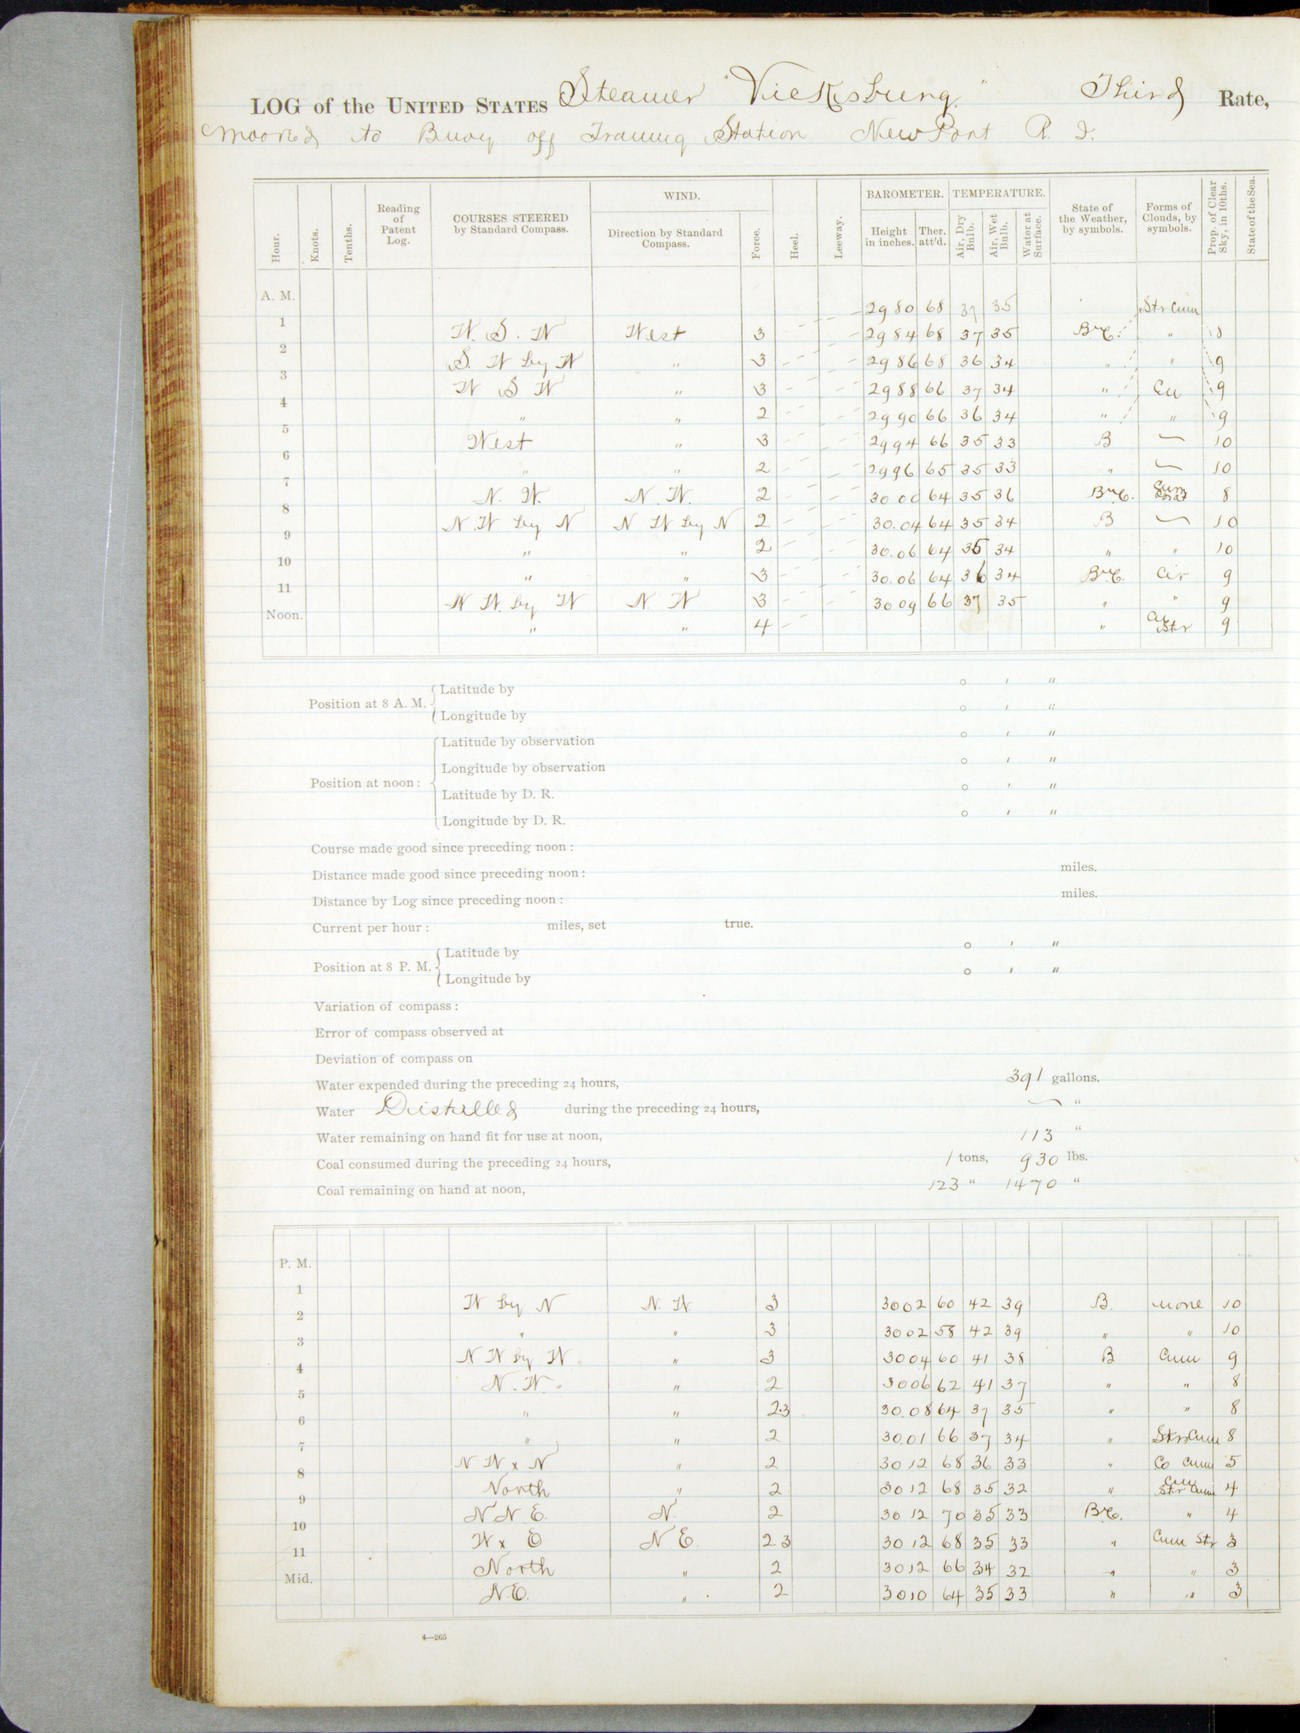 LOG of the UNITED STATES Steamer "Vicksburg" Third Rate,
Moored to Buoy off Training Station NewPort R. I.
Hour. Knots. Tenths. Reading of Patent Log. COURSES STEERED by Standard Compass. WIND. Direction by Standard Compass. Force. Heel. Leeway. BAROMETER. Height in inches. Ther. att'd. TEMPERATURE. Air, Dry Bulb. Air, Wet Bulb. Water at Surface. State of the Weather, by symbols. Forms of Clouds, by symbols. Prop. of Clear Sky, in 10ths. State of the Sea.
A. M. 29 80 68 37 35 Str Cum
1 W. S. W West 3 29 84 68 37 35 B&C. " 8
2 S. W by W " 3 29 86 68 36 34 " " 9
3 W S W " 3 29 88 66 37 34 " Cu 9
4 " " 2 29 90 66 36 34 " " 9
5 West " 3 29 94 66 35 33 B — 10
6 " " 2 29 96 65 35 33 " — 10
7 N. W. N. W. 2 30 00 64 35 36 B&C. Cum 8
8 N. W by N N W by N 2 30.04 64 35 34 B — 10
9 " " 2 30.06 64 35 34 " " 10
10 " " 3 30.06 64 36 34 B&C. Cir 9
11 N W. by W N. W 3 30 09 66 37 35 " " 9
Noon. " " 4 " Str 9
Position at 8 A. M. Latitude by ° ' "
Longitude by ° ' "
Position at noon: Latitude by observation ° ' "
Longitude by observation ° ' "
Latitude by D. R. ° ' "
Longitude by D. R. ° ' "
Course made good since preceding noon:
Distance made good since preceding noon: miles.
Distance by Log since preceding noon: miles.
Current per hour: miles, set true.
Position at 8 P. M. Latitude by ° ' "
Longitude by ° ' "
Variation of compass:
Error of compass observed at
Deviation of compass on
Water expended during the preceding 24 hours, 391 gallons.
Water Distilled during the preceding 24 hours, — "
Water remaining on hand fit for use at noon, 113 "
Coal consumed during the preceding 24 hours, 1 tons, 930 lbs.
Coal remaining on hand at noon, 123 " 1470 "
P. M.
1 W by N N. W 3 30 02 60 42 39 B. none 10
2 " " 3 30 02 58 42 39 " " 10
3 N W by W " 3 30 04 60 41 38 B Cum 9
4 N. W. " 2 30 06 62 41 37 " " 8
5 " " 2.3 30.08 64 37 35 " " 8
6 " " 2 30.01 66 37 34 " Str Cum 8
7 N W x N " 2 30 12 68 36 33 " Co Cum 5
8 North " 2 30 12 68 35 32 " Str Cum 4
9 N N. E. N. 2 30 12 70 35 33 B&C. " 4
10 N x E N E. 2.3 30 12 68 35 33 " Cum Str 3
11 North " 2 30 12 66 34 32 " " 3
Mid. N. E. " 2 30 10 64 35 33 " " 3
4—265